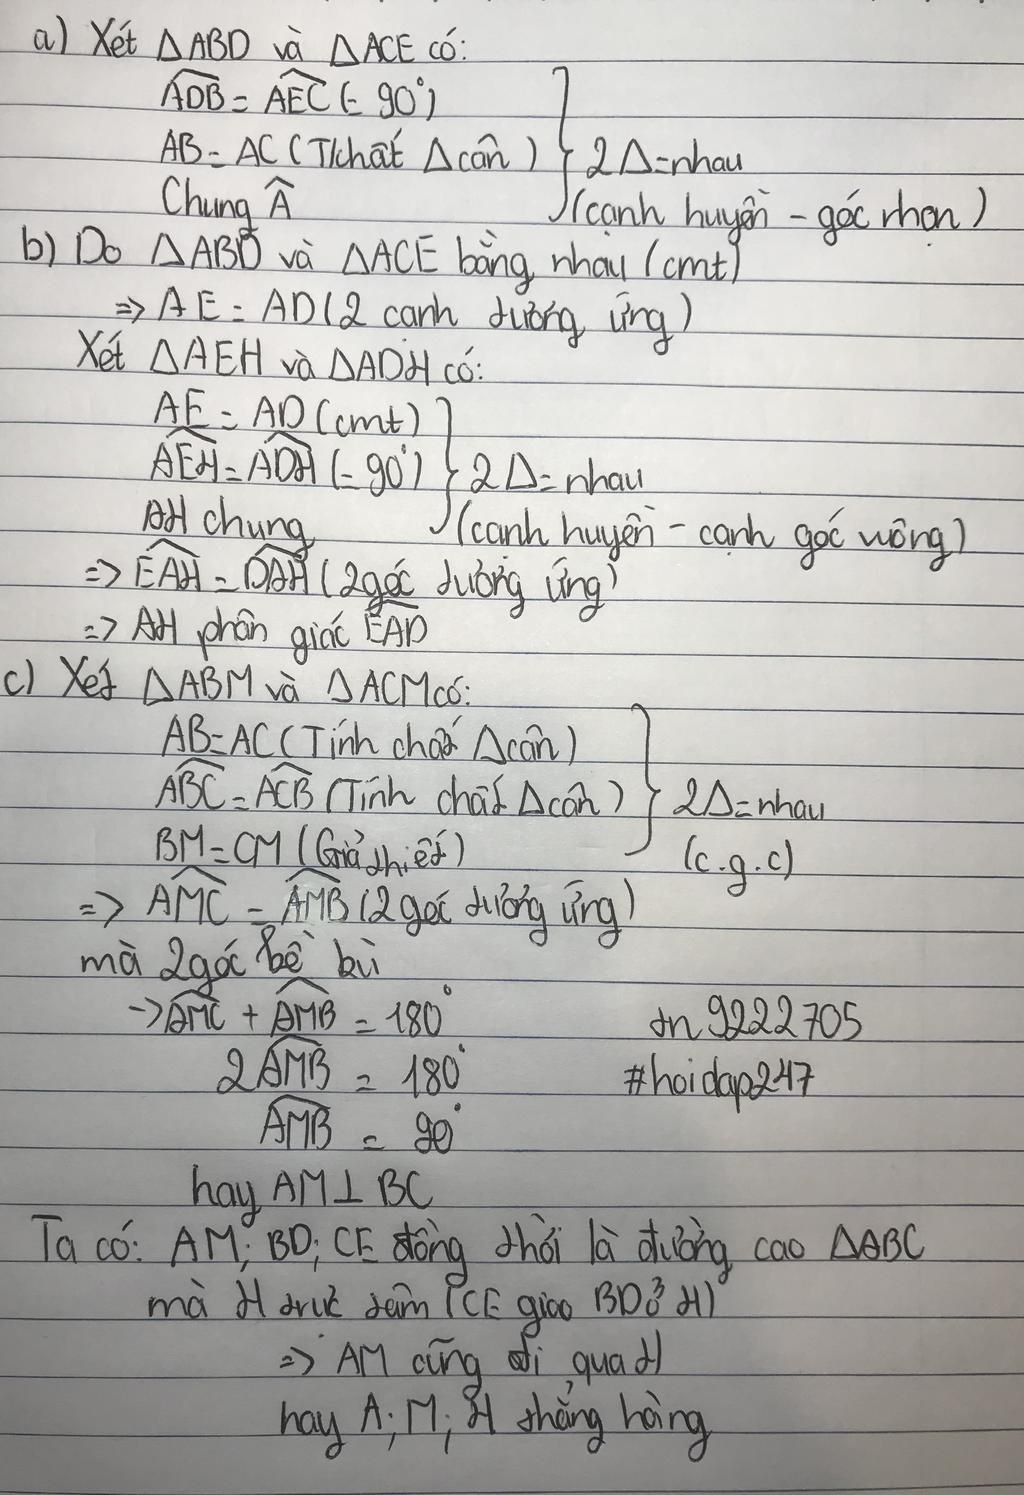 a) Xét ΔABD và ΔACE có:
ADB = AEC (= 90°)
AB = AC (T/chất Δ cân) } 2Δ = nhau
Chung Â (cạnh huyền - góc nhọn)
b) Do ΔABD và ΔACE bằng nhau (cmt)
=> AE = AD (2 cạnh tương ứng)
Xét ΔAEH và ΔADH có:
AE = AD (cmt)
AEH = ADH (= 90°) } 2Δ = nhau
AH chung (cạnh huyền - cạnh góc vuông)
=> EAH = DAH (2 góc tương ứng)
=> AH phân giác EAD
c) Xét ΔABM và ΔACM có:
AB = AC (Tính chất Δ cân)
ABC = ACB (Tính chất Δ cân) } 2Δ = nhau
BM = CM (Giả thiết) (c.g.c)
=> AMC = AMB (2 góc tương ứng)
mà 2 góc kề bù
-> AMC + AMB = 180° tn9222705
2AMB = 180° #hoidap247
AMB = 90°
hay AM ⊥ BC
Ta có: AM; BD; CE đồng thời là đường cao ΔABC
mà H trực tâm (CE giao BD ở H)
=> AM cũng đi qua H
hay A; M; H thẳng hàng